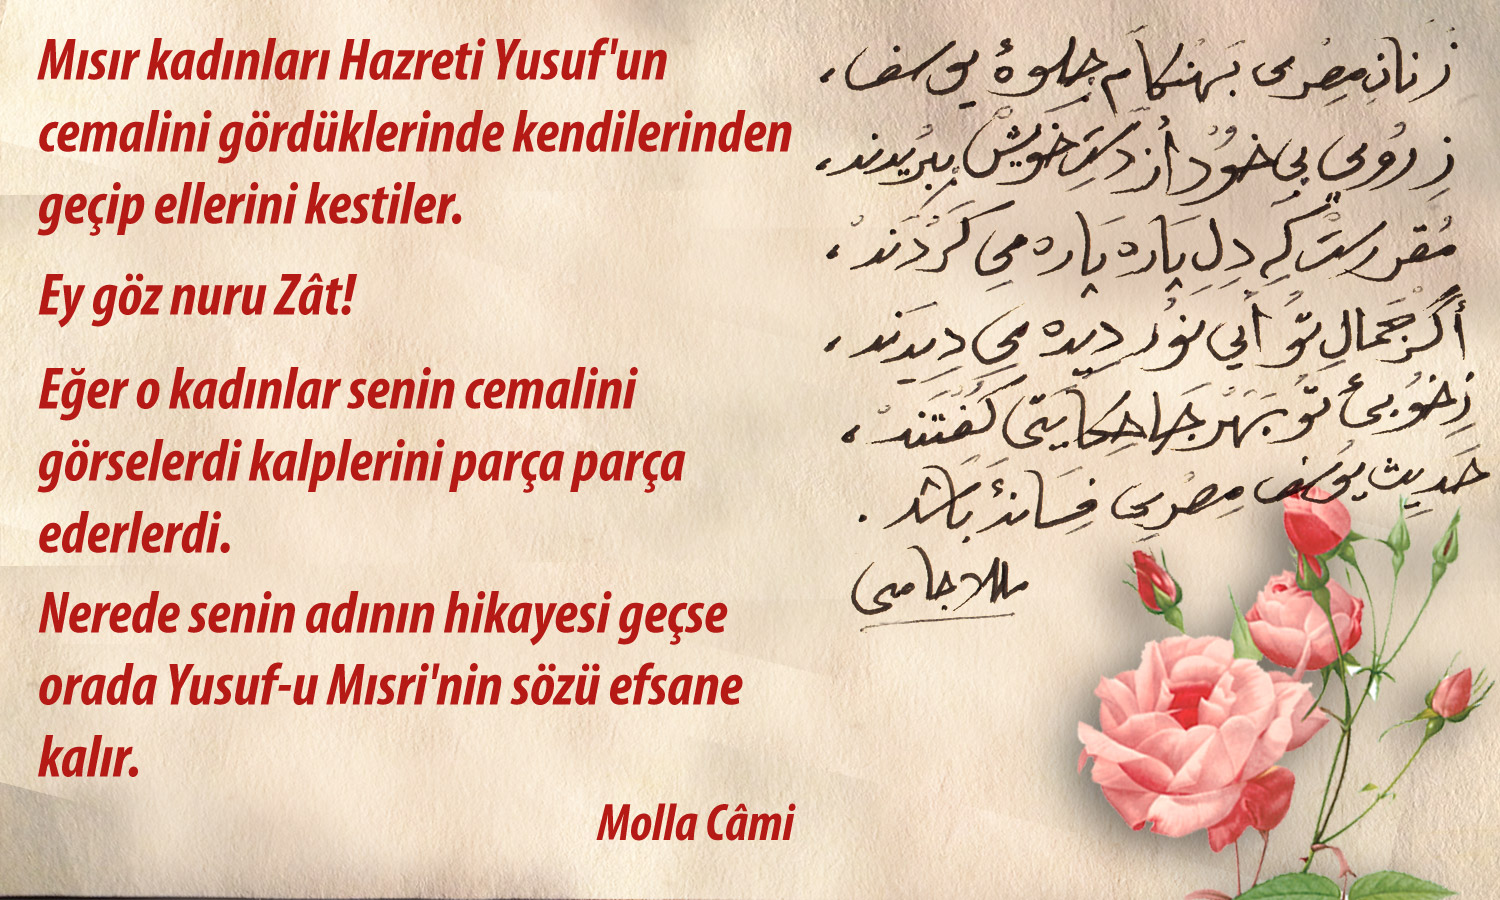 Mısır kadınları Hazreti Yusuf'un
cemalini gördüklerinde kendilerinden
geçip ellerini kestiler.
Ey göz nuru Zât!
Eğer o kadınlar senin cemalini
görselerdi kalplerini parça parça
ederlerdi.
Nerede senin adının hikayesi geçse
orada Yusuf-u Mısri'nin sözü efsane
kalır.
Molla Câmi
زَنانِ مِصْرى بَهَنْكَامِ جِلوۀ يوسف،
زِ رُويِ بِي خُودْ أزدَستِ خويشْ بِبُرِيدَند،
مُقررستْ كِه دِلِ پَاره پَاره مِي كَرْدَندْ،
أگرْجَمالِ تُو أَىِ نُورِ دِيده مِي دِيدَند،
زِخُوبىِٔ تُو بَهَرْ جَا حِكَايَتى كُفْتَندْ،
حَدِيثِ يوُسُفِ مِصْرِي فِسَانَۀ بَاشَد.
ملا جامى